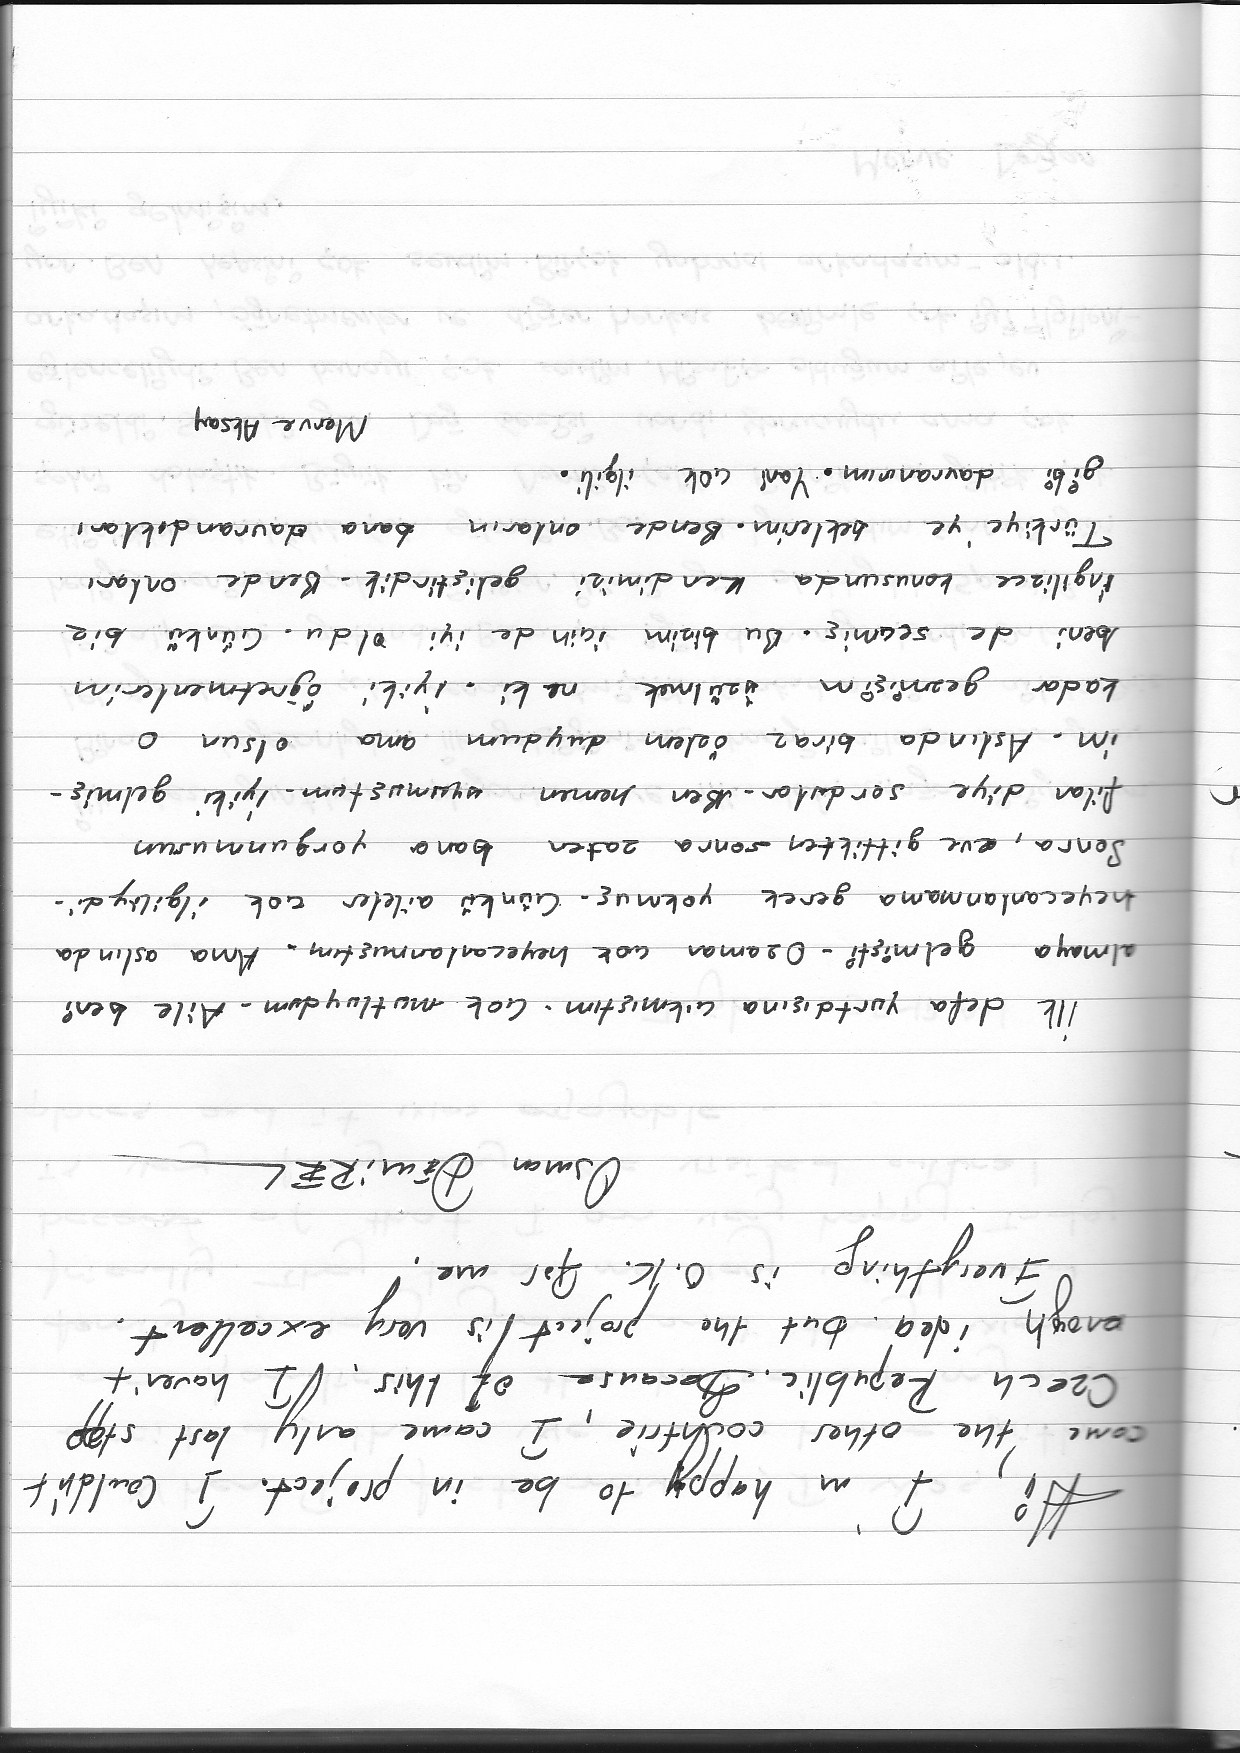 Hi, I'm happy to be in project. I Couldn't
come the other countrie, I came only last stop
Czech Republic. Because of this, I haven't
enogh idea. But the project is very excellent.
Everything is O.K. for me.
Osman DEMiREL
ilk defa yurtdisina cikmistim. Cok mutluydum. Aile beni
almaya gelmisti. Ozaman cok heyecanlanmıstım. Ama aslında
heyecanlanmama gerek yokmuş. Cünkü aileler cok ilgiliydi.
Sonra, eve gittikten sonra zaten bana yorgunmusun
filan diye sordular. Ben hemen uyumuştum. iyiki gelmiş-
im. Aslında biraz özlem duydum ama olsun o
kadar gezmişim üzülmek ne ki. iyiki öğretmenlerim
beni de secmiş. Bu bizim icin de iyi oldu. Cünkü biz
ingilizce konusunda kendimizi geliştirdik. Bende onları
Türkiye'ye beklerim. Bende onların bana davrandıkları
gibi davranırım. Yani cok ilgili.
Merve Aksay